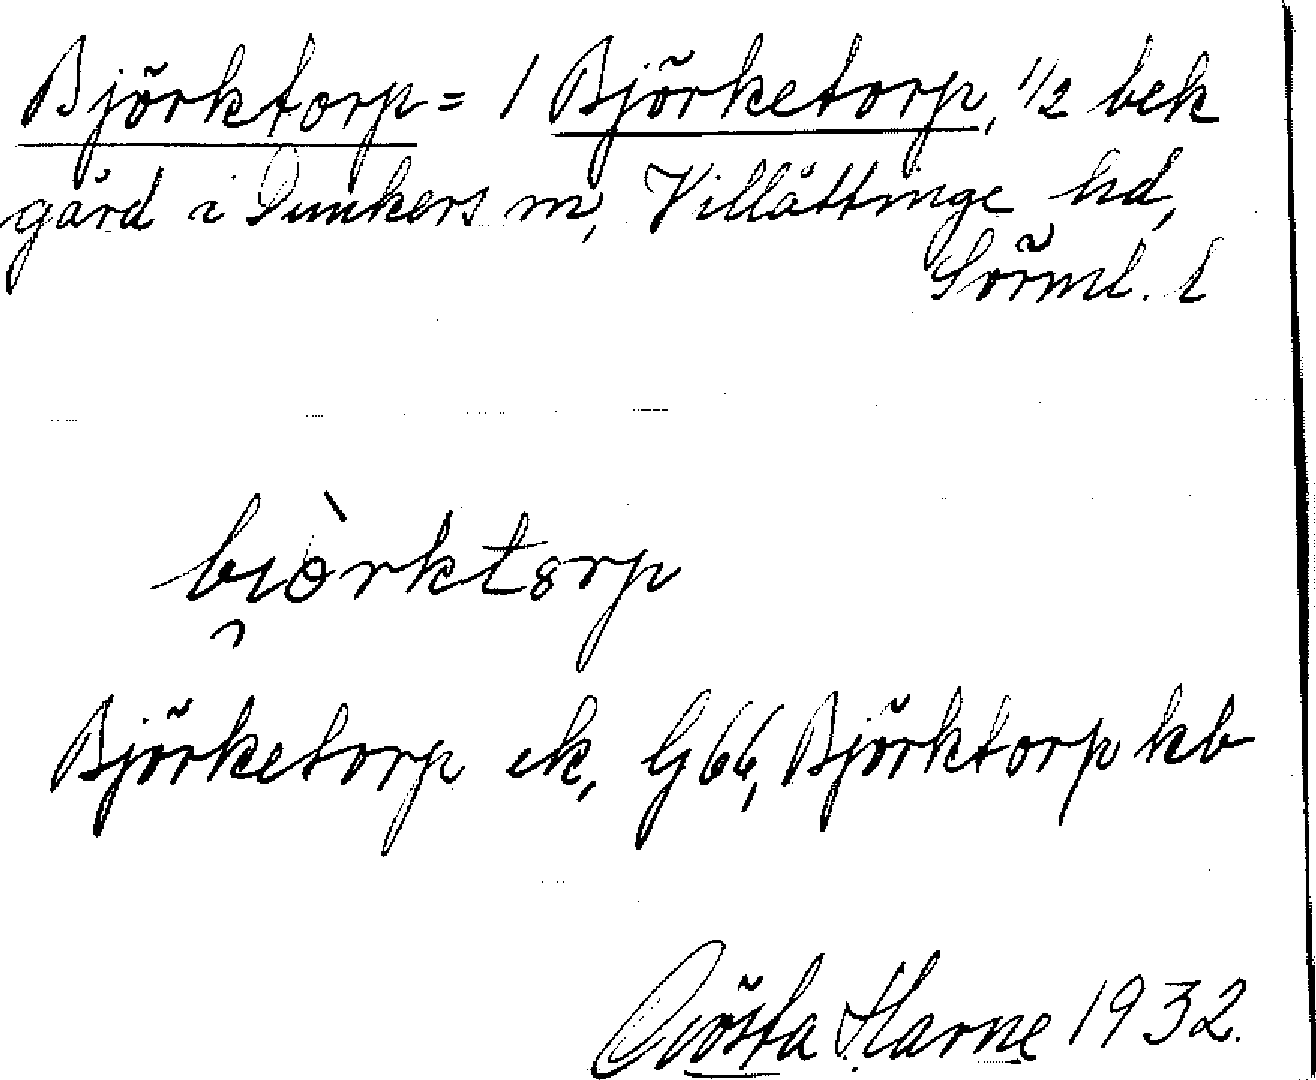 Björktorp = 1 Björketorp, 1/2 bek
gård i Dunkers sn, Villåttinge hd,
Sörml. l
bi̯òrktɞrp
Björketorp ek, G66, Björktorp kb
Gösta Harne 1932.